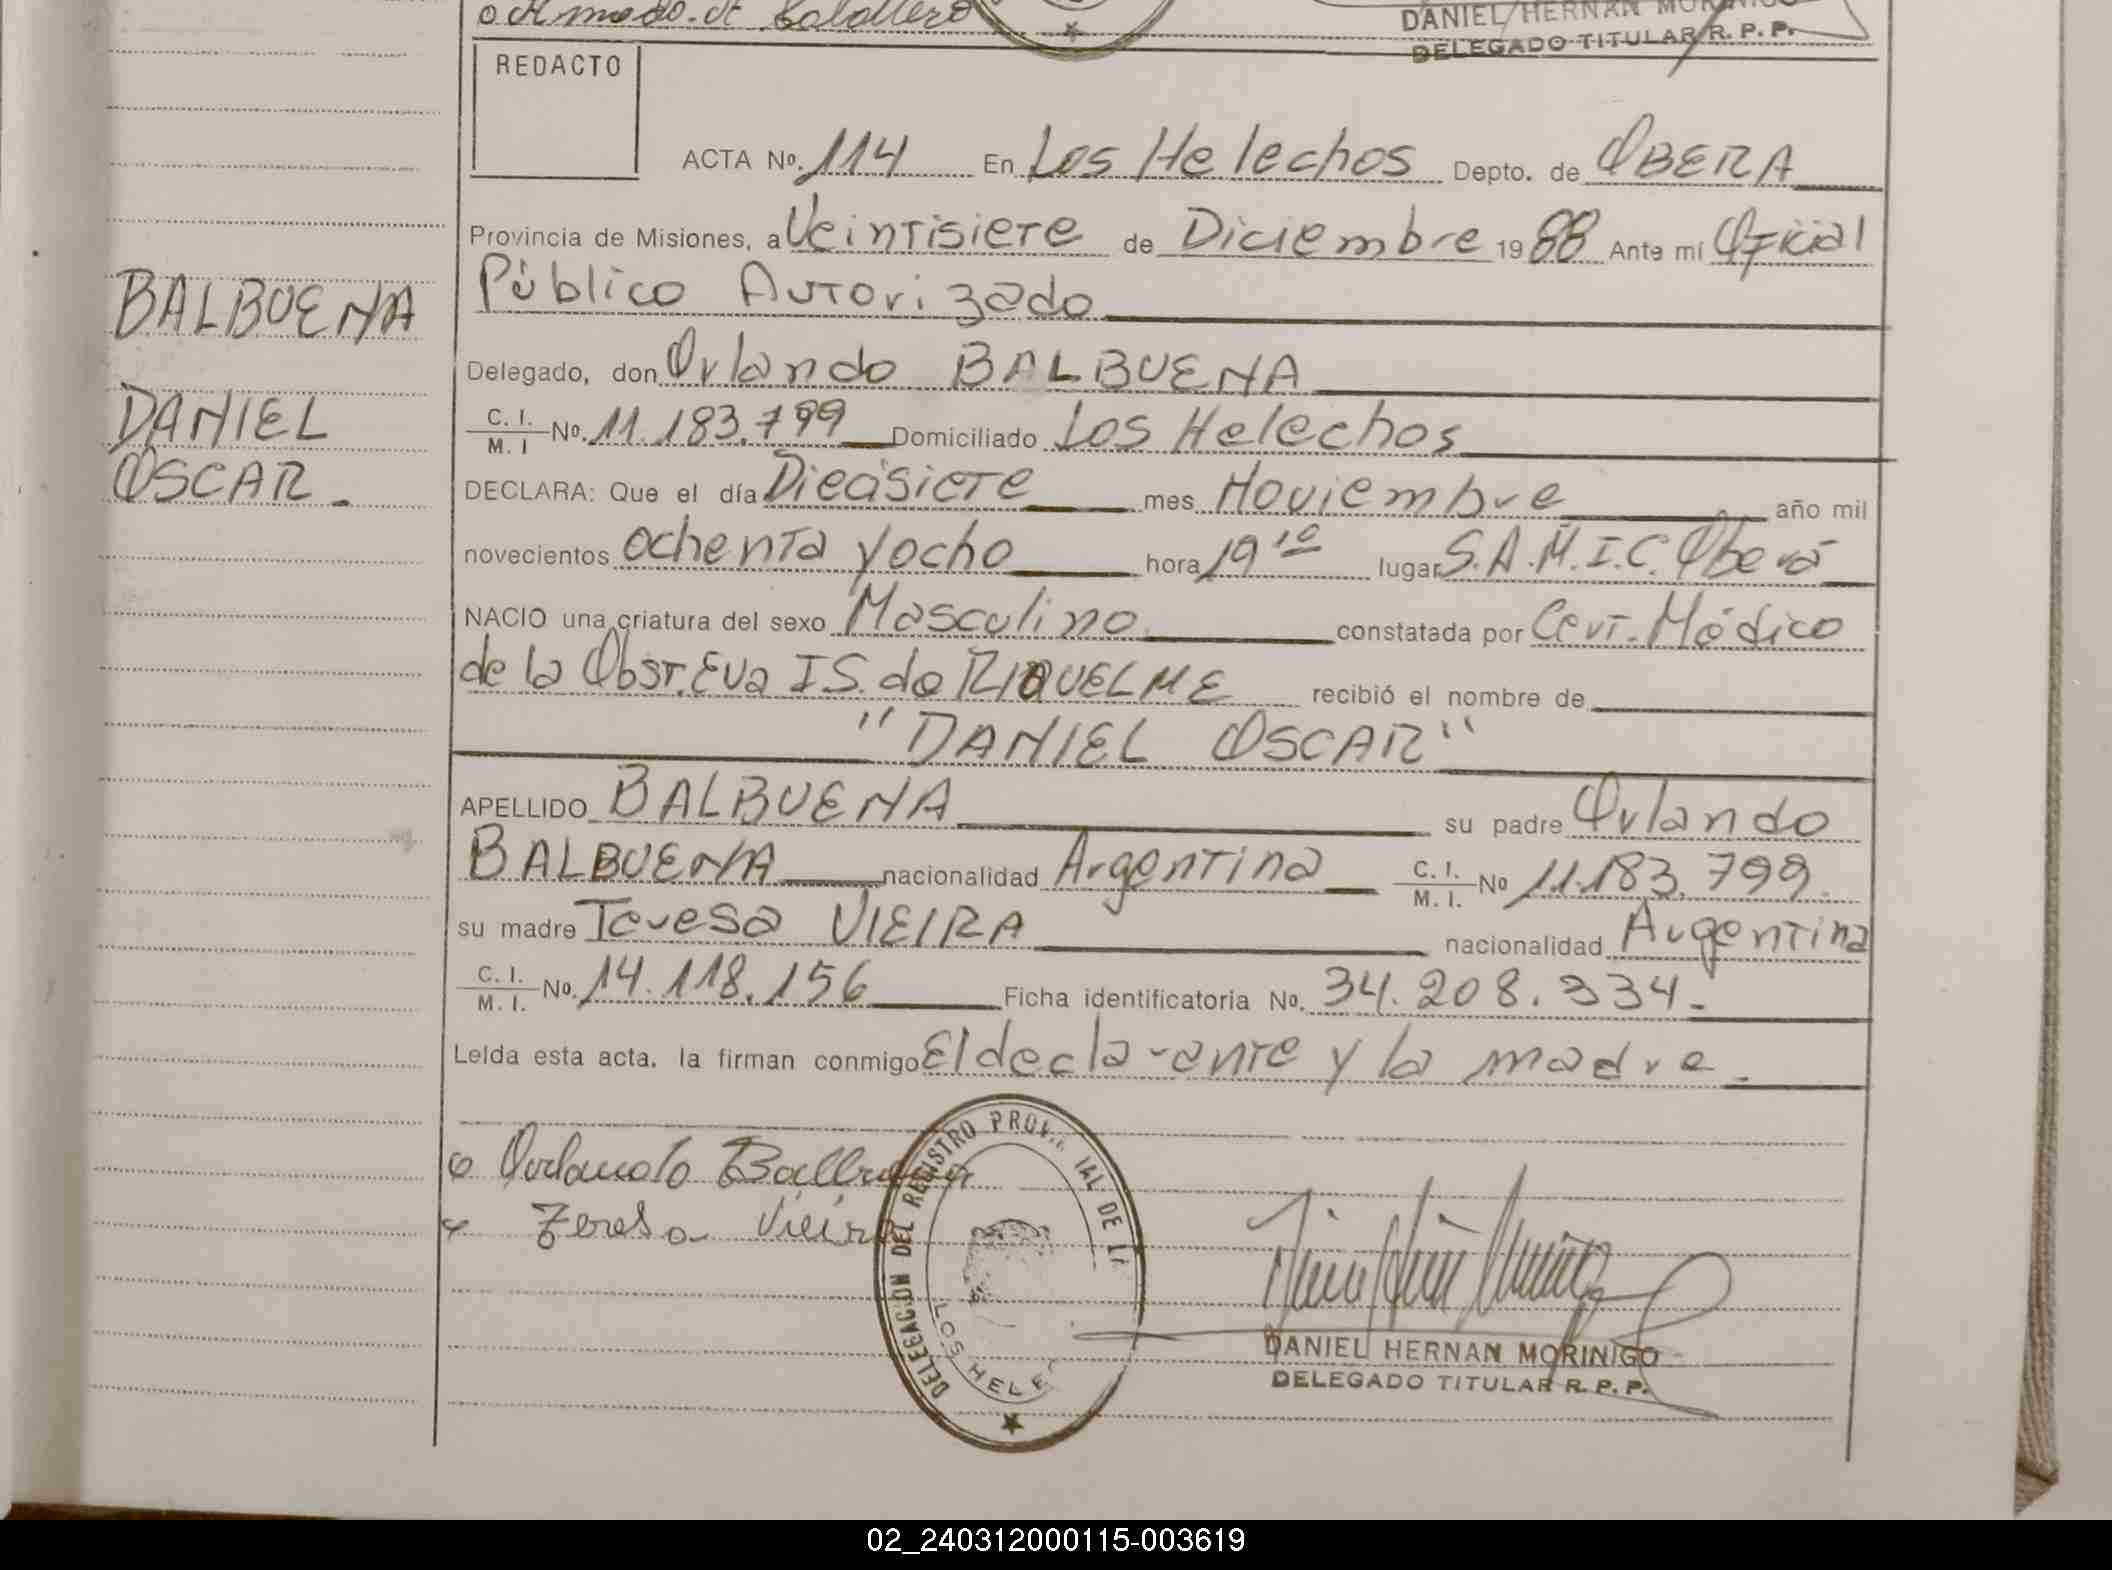 DANIEL HERNAN MORINIGO
DELEGADO TITULAR R. P. P.
REDACTO
ACTA Nº. 114 En Los Helechos Depto. de OBERA
Provincia de Misiones, a Veintisiete de Diciembre 1988 Ante mí Oficial
Público Autorizado
Delegado, don Orlando BALBUENA
C. I. / M. I Nº. 11.183.799 Domiciliado Los Helechos
DECLARA: Que el día Diecisiete mes Noviembre año mil
novecientos ochenta y ocho hora 19 10 lugar S.A.M.I.C. Oberá
NACIO una criatura del sexo Masculino constatada por Cert. Médico
de la Obst. Eva I S. de RIQUELME recibió el nombre de
"DANIEL OSCAR"
APELLIDO BALBUENA su padre Orlando
BALBUENA nacionalidad Argentina C. I. / M. I. Nº 11.183.799.
su madre Teresa VIEIRA nacionalidad Argentina
C. I. / M. I. Nº. 14.118.156 Ficha identificatoria Nº. 34.208.334.
Leída esta acta, la firman conmigo El declarante y la madre.
BALBUENA
DANIEL
OSCAR.
Orlando Balbuena
Teresa Vieira
DELEGACION DEL REGISTRO PROV IAL DE L
LOS HELEC
DANIEL HERNAN MORINIGO
DELEGADO TITULAR R. P. P.
02_240312000115-003619